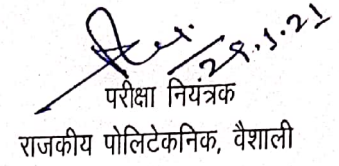 29.1.21
परीक्षा नियंत्रक
राजकीय पोलिटेकनिक, वैशाली